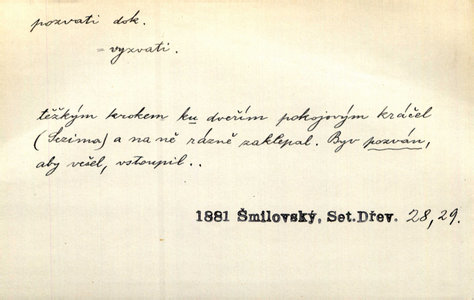 pozvati dok.
= vyzvati.
těžkým krokem ku dveřím pokojovým kráčel
(Sezima) a na ně rázně zaklepal. Byv pozván,
aby vešel, vstoupil..
1881 Šmilovský, Set.Dřev. 28,29.